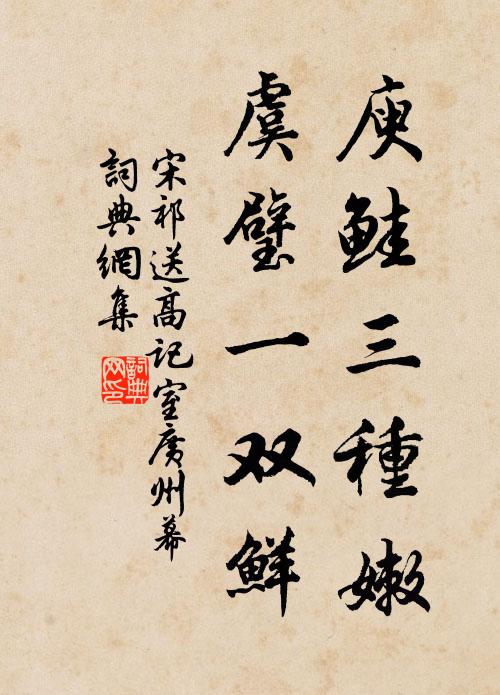 庾鮭三種嫩
虞璧一双鮮
宋祁送高记室廣州幕
詞典網集
詞典
网印